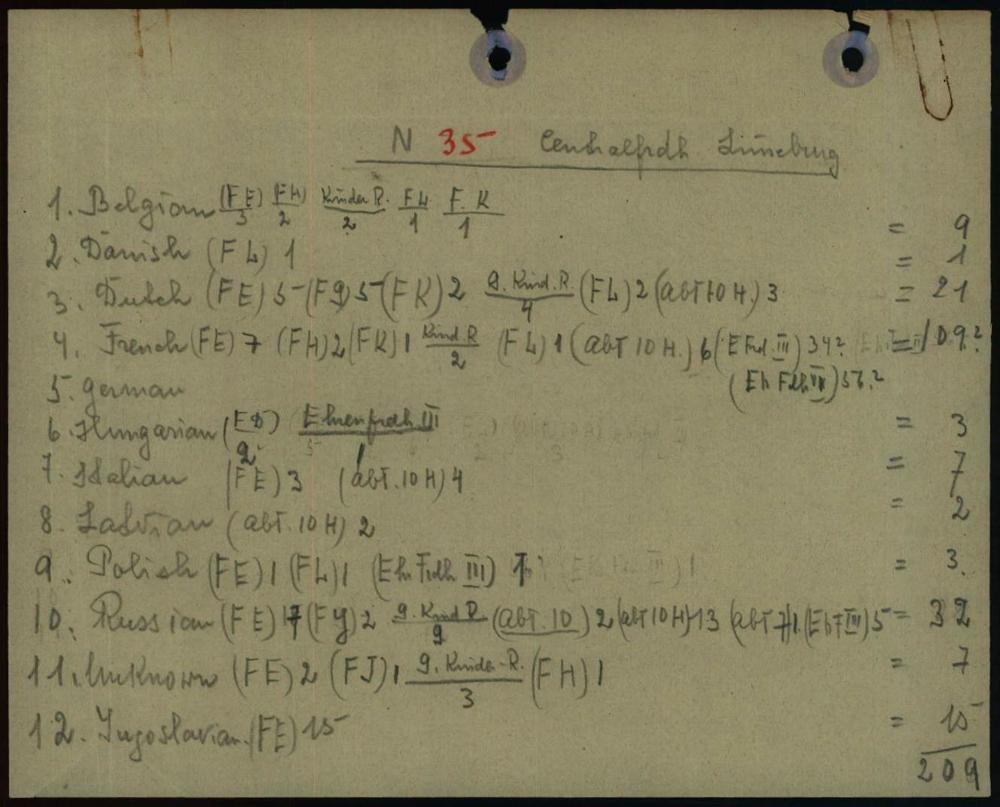 N 35 Centralfrdh Lüneburg
1. Belgian (FE) 3 (FH) 2 Kinder R. 2 FL 1 F. K 1 = 9
2. Dänish (FL) 1 = 1
3. Dutch (FE) 5 (FG) 5 (FK) 2 g. Kind. R. 4 (FL) 2 (abt 10 H.) 3 = 21
4. French (FE) 7 (FH) 2 (FK) 1 Kind. R 2 (FL) 1 (abt 10 H.) 6 (E Frd. III) 34? = 109.?
(Eh Fdh VII) 56.?
5. German
6. Hungarian (FD) 2 Ehrenfrdh III 1 = 3
7. Italian (FE) 3 (abt. 10 H) 4 = 7
8. Latvian (abt. 10 H) 2 = 2
9. Polish (FE) 1 (FL) 1 (Ehr Frdh III) 1 = 3.
10. Russian (FE) (FG) 2 g. Kind R 9 (abt. 10) 2 (abt 10 H) 13 (abt 7) 1. (Eh F III) 5 = 32
11. Unknown (FE) 2 (FJ) 1 g. Kinder-R. 3 (FH) 1 = 7
12. Jugoslavian. (FE) 15 = 15
209